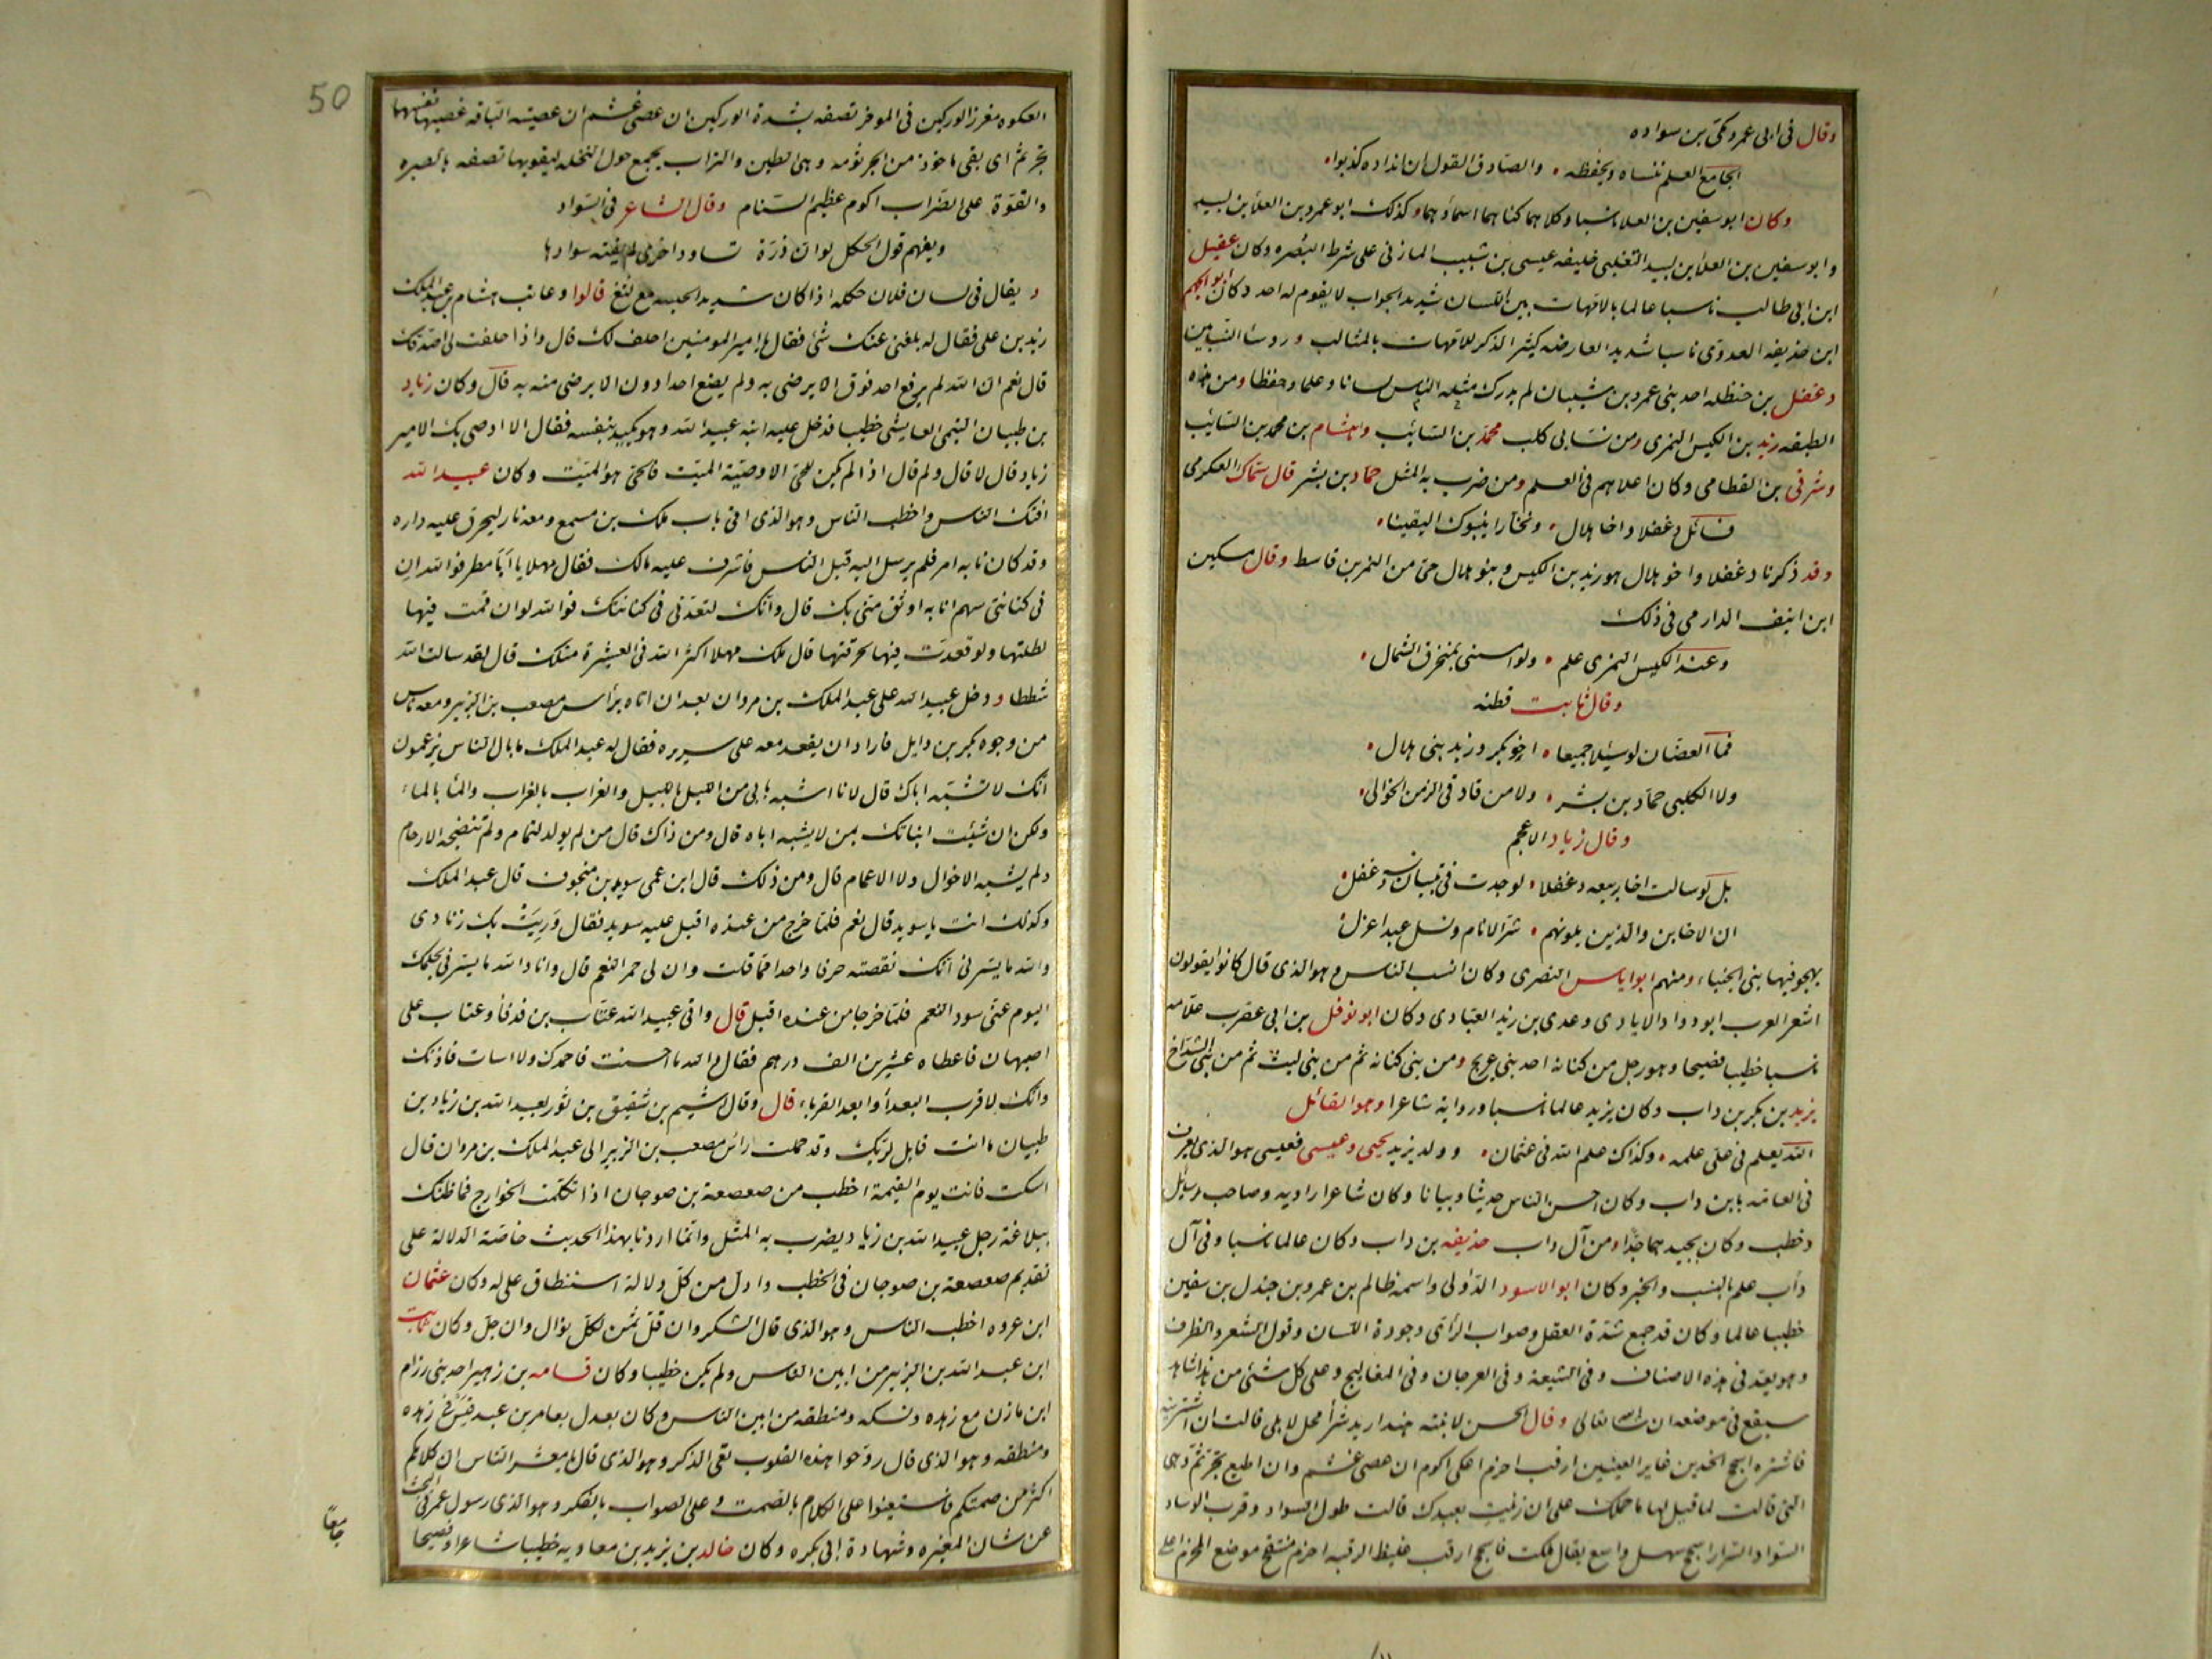 وقال فى ابى عمرو مكى بن سواده
الجامع العلم ننساه ويحفظه والصادق القول ان انداده كذبوا
وكان ابو سفين بن العلا ناسبا وكلاهما كناهما اسماؤهما وكذلك ابو عمرو بن العلا بن لبيد
وابو سفين بن العلا بن لبيد التغلبى خليفه عيسى بن شبيب المازنى على شرط البصره وكان عقيل
ابن ابى طالب ناسبا عالما بالامهات بين اللسان شديد الجواب لا يقوم له احد وكان ابو الجهم
ابن حذيفه العدوى ناسبا شديد العارضه كثير الذكر للامهات بالمثالب وروسا النسابين
دغفل بن حنظله احد بنى عمرو بن شيبان لم يدرك الناس مثله لسانا وعلما وحفظا ومن هذه
الطبقه زيد بن الكيس النمرى ومن نسابى كلب محمد بن السائب وهشام بن محمد بن السائب
وشرقى بن القطامى وكان اعلاهم فى العلم ومن ضرب به المثل حماد بن بشر قال سماك العكرمى
فسائل دغفلا واخا هلال وبخآرا ينبوك اليقينا
وقد ذكرنا دغفلا واخو هلال هو زيد بن الكيس وبنو هلال حى من النمر بن قاسط وقال مسكين
ابن انيف الدارمى فى ذلك
وعند الكيس النمرى علم ولو امسى بمنخرق الشمال
وقال ثابت قطنه
فما العضان لو سئلا جميعا اخو بكر وزيد بنى هلال
ولا الكلبى حماد بن بشر ولا من قاد فى الزمن الخوالى
وقال زياد الاعجم
بل لو سالت اخا ربيعه دغفلا لوجدت فى شيبان نسبه دغفل
ان الاخابن والذين يلونهم شر الانام ونسل عبد اغزل
يهجو فيها بنى الحبناء ومنهم ابو اياس النصرى وكان انسب الناس وهو الذى قال كانوا يقولون
اشعر العرب ابو دواد الايادى وعدى بن زيد العبادى وكان ابو نوفل بن ابى عقرب علامه
ناسبا خطيبا فصيحا وهو رجل من كنانه احد بنى عريج ومن بنى كنانه ثم من بنى ليث ثم من بنى الشداخ
يزيد بن بكر بن داب وكان يزيد عالما ناسبا وروايه شاعرا وهو القائل
الله يعلم فى على علمه وكذاك علم الله فى عثمان وولد يزيد يحيى وعيسى فعيسى هو الذى يعرف
فى العامه بابن داب وكان احسن الناس حديثا وبيانا وكان شاعرا راويه وصاحب رسائل
وخطب وكان يجيدهما جدا ومن آل داب حذيفه بن داب وكان عالما ناسبا وفى آل
دأب علم بالنسب والخبر وكان ابو الاسود الدؤلى واسمه ظالم بن عمرو بن جندل بن سفين
خطيبا عالما وكان قد جمع شدة العقل وصواب الرأى وجودة اللسان وقول الشعر والظرف
وهو يعد فى هذه الاصناف وفى الشيعة وفى العرجان وفى المفاليج وعلى كل شئ من هذا شاهد
سيقع فى موضعه ان شاء الله تعالى وقال الحسن لابنته هند اريد شرأ فحل لابلى قالت ان اشتريته
فاشتره اسجح الخدين غاير العينين ارقب احزم اعكى اكوم ان عصى غشم وان اطيع تجرثم وهى
التى قالت لما قيل لها ما حملك على ان زنيت بعبدك قالت طول السواد وقرب الوساد
السواد السرار اسجح سهل واسع يقال ملكت فاسجح ارقب غليظ الرقبه احزم منتفخ موضع المحزم اعلى
50
العكوه مغرز الوركين فى الموخر تصفه بشدة الوركين ان عصى غشم ان عصيته الناقه غصبها نفسها
تجرثم اى بقى ماخوذ من الجرثومه وهى الطين والتراب يجمع حول النخله ليقويها تصفه بالصبره
والقوة على الضراب اكوم عظيم السنام وقال الشاعر فى السواد
ويفهم قول الحكل لو ان ذرة تساود اخرى لم يفته سوادها
ويقال فى لسان فلان حكله اذا كان شديد الحبسه مع لثغ قالوا وعاتب هشام بن عبد الملك
زيد بن على فقال له بلغنى عنك شئ فقال يا امير المومنين احلف لك قال واذا حلفت لى اصدقك
قال نعم ان الله لم يرفع احد فوق الا يرضى به ولم يضع احدا دون الا يرضى منه به قال وكان زياد
بن ظبيان التيمى العايشى خطيبا فدخل عليه ابنه عبيد الله وهو يكيد بنفسه فقال الا اوصى بك الامير
زياد قال لا قال ولم قال اذا لم يكن للحى الا وصية الميت فالحى هو الميت وكان عبيد الله
افتك الناس واخطب الناس وهو الذى اتى باب ملك بن مسمع ومعه نار ليحرق عليه داره
وقد كان نابه امر فلم يرسل اليه قبل الناس فاشرف عليه مالك فقال مهلا يا ابا مطر فوالله ان
فى كنانتى سهم انا به اوثق منى بك قال وانك لتعدنى فى كنانتك فوالله لو ان قمت فيها
لطلتها ولو قعدت فيها لخرقتها قال ملك مهلا اكثر الله فى العشيرة مثلك قال لقد سالت الله
شططا ودخل عبيد الله على عبد الملك بن مروان بعد ان اتاه برأس مصعب بن الزبير ومعه ناس
من وجوه بكر بن وايل فاراد ان يقعد معه على سريره فقال له عبد الملك ما بال الناس يزعمون
انك لا تشبه اباك قال لانا اشبه بابى من الليل بالليل والغراب بالغراب والماء بالماء
ولكن ان شئت انباتك بمن لا يشبه اباه قال ومن ذاك قال من لم يولد لتمام ولم تنضجه الارحام
ولم يشبه الاخوال ولا الاعمام قال ومن ذلك قال ابن عمى سويد بن منجوف قال عبد الملك
وكذلك انت يا سويد قال نعم فلما خرج من عنده اقبل عليه سويد فقال وريت بك زنادى
والله ما يسرنى انك نقصته حرفا واحدا مما قلت وان لى حمر النعم قال وانا والله ما يسرنى بحلمك
اليوم عنى سود النعم فلما خرجا من عنده اقبل قال واتى عبيد الله عتاب بن ورقأ وعتاب على
اصبهان فاعطاه عشرين الف درهم فقال والله ما احسنت فاحمدك ولا اسات فاذمك
وانك لاقرب البعدأ وابعد القرباء قال وقال اشيم بن شقيق بن ثور لعبيد الله بن زياد بن
ظبيان ما انت قايل لربك وقد حملت رأس مصعب بن الزبير الى عبد الملك بن مروان قال
اسكت فانت يوم القيمة اخطب من صعصعة بن صوجان اذا تكلمت الخوارج فما ظنك
ببلاغة رجل عبيد الله بن زياد يضرب به المثل وانما اردنا بهذا الحديث خاصة الدلالة على
تقديم صعصعة بن صوجان فى الخطب وادل من كل دلالة استنطاق على له وكان عثمان
ابن عروه اخطب الناس وهو الذى قال الشكر وان قل ثمن لكل نوال وان جل وكان ثابت
ابن عبد الله بن الزبير من ابين الناس ولم يكن خطيبا وكان قسامه بن زهير احد بنى رزام
ابن مازن مع زهده ونسكه ومنطقه من ابين الناس وكان يعدل بعامر بن عبد قيس فى زهده
ومنطقه وهو الذى قال روحوا هذه القلوب تعى الذكر وهو الذى قال يا معشر الناس ان كلامكم
اكثر من صمتكم فاستعينوا على الكلام بالصمت وعلى الصواب بالفكر وهو الذى رسول عمر فى البحث
عن شان المغيره وشهادة ابى بكره وكان خالد بن يزيد بن معاويه خطيبا شاعرا وفصيحا
جامعاً